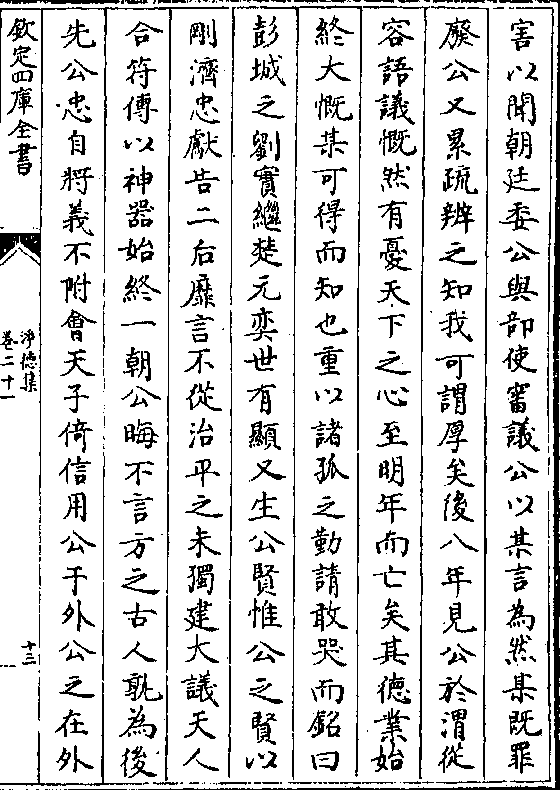 害以聞朝廷委公與部使審議公以某言為然某既罪
廢公又累疏辨之知我可謂厚矣後八年見公於渭從
容語議慨然有憂天下之心至明年而亡矣其德業始
終大慨某可得而知也重以諸孤之勤請敢哭而銘曰
彭城之劉實繼楚元奕世有顯又生公賢惟公之賢以
剛濟忠獻告二后靡言不從治平之末獨建大議天人
合符傳以神器始終一朝公晦不言方之古人孰為後
先公忠自將義不附會天子倚信用公于外公之在外
欽定四庫全書
淨德集
卷二十一
十三